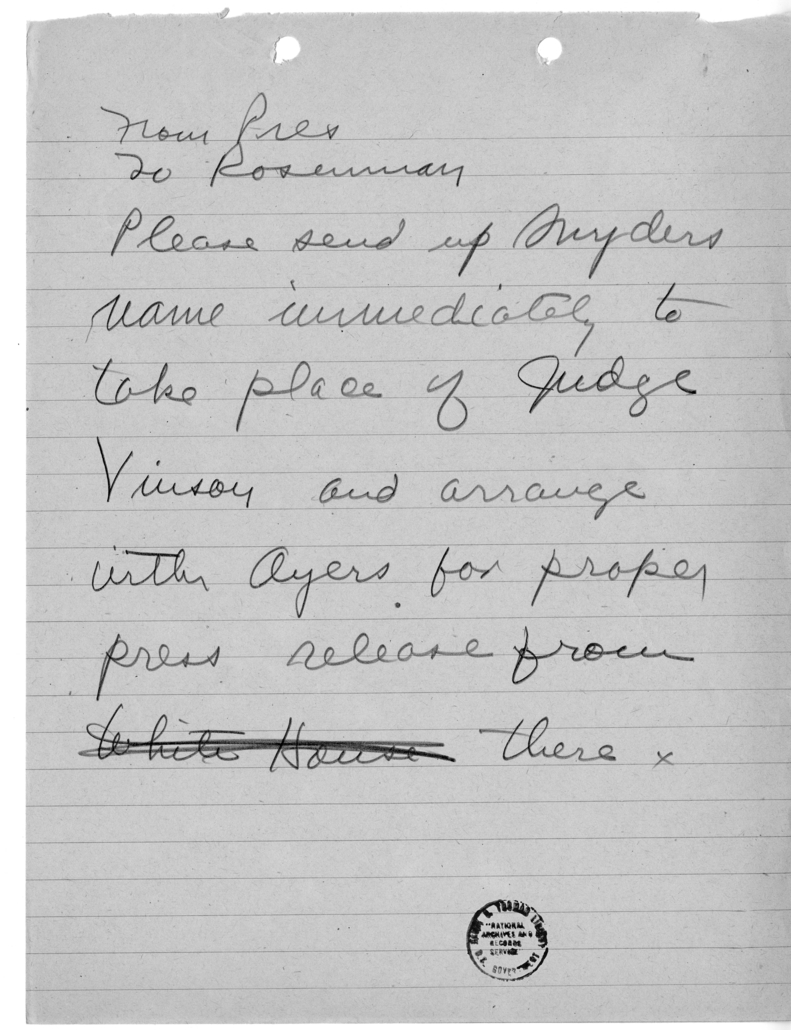 From Pres
To Rosenman
Please send up Snyders
name immediately to
take place of Judge
Vinson and arrange
with Ayers for proper
press release from
White House there x
HARRY S. TRUMAN LIBRARY
NATIONAL
ARCHIVES AND
RECORDS
SERVICE
U.S. GOVERNMENT